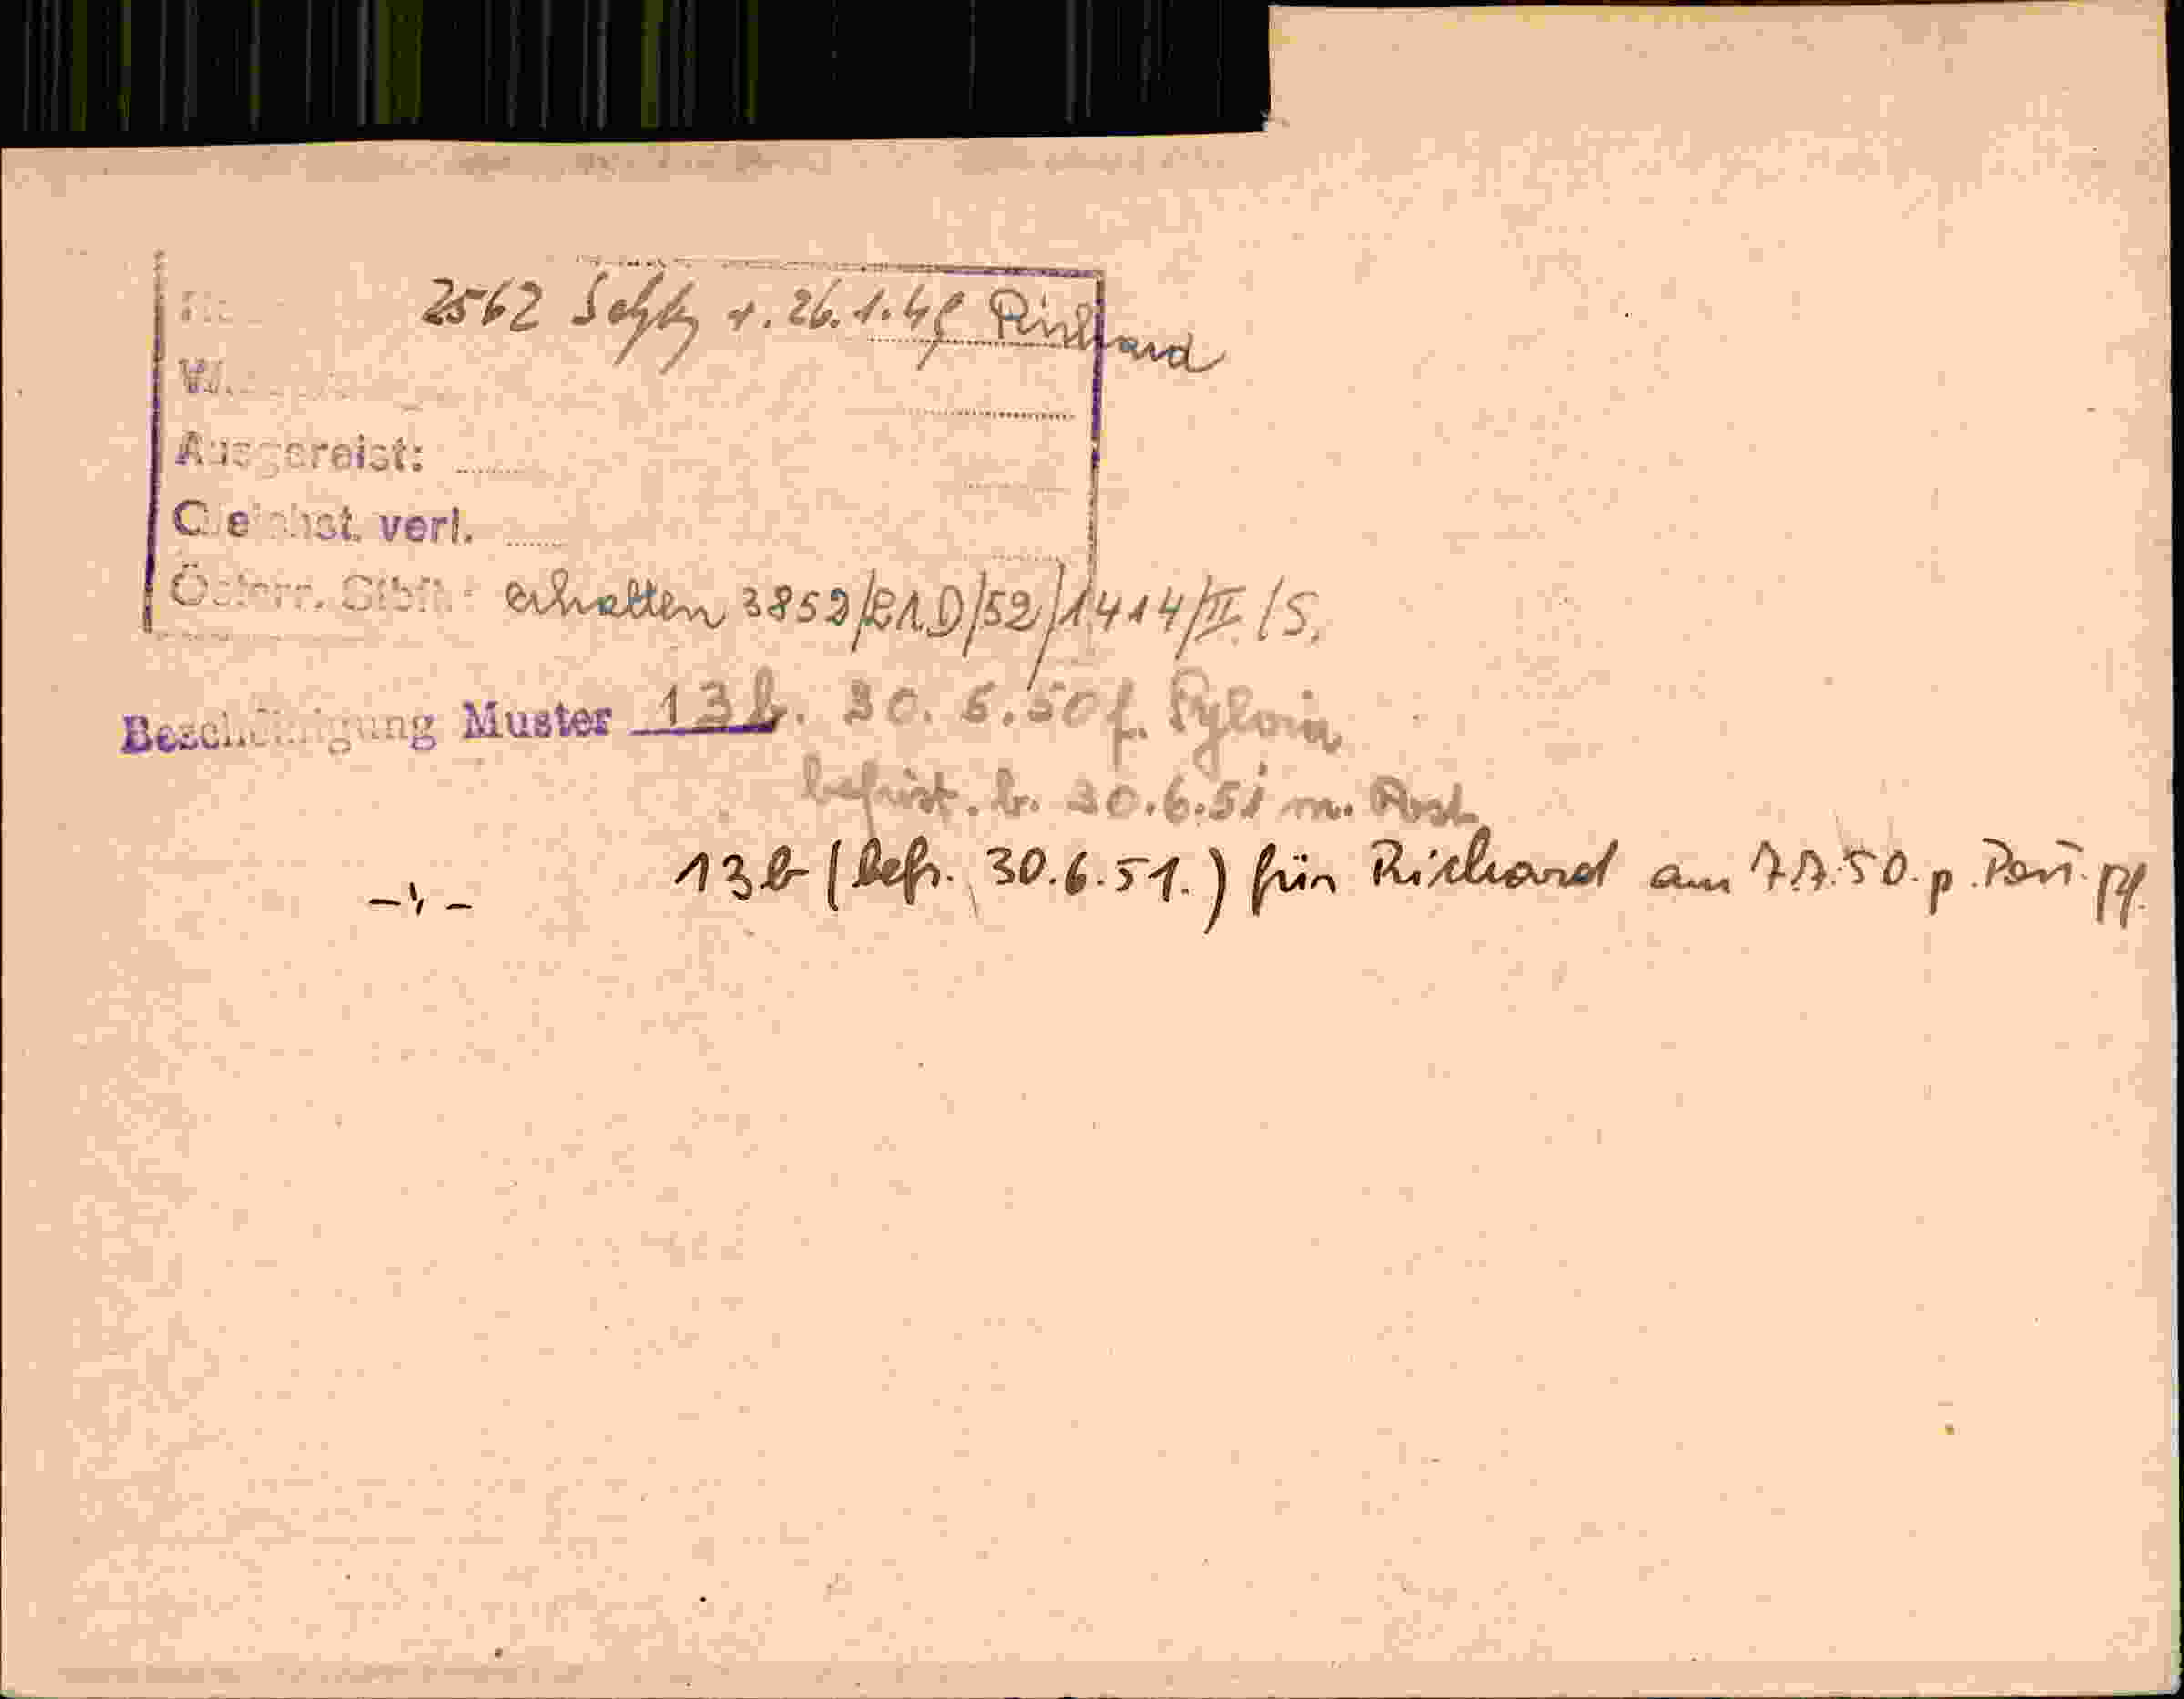 2562 v. 26.1.48 Richard
Ausgereist:
Gleichst. verl.
Österr. Stb.: erhalten 3852/BAD/52/1414/II/S.
Bescheinigung Muster 13b. 30. 6. 50 f. Sylvia
befrist. b. 30.6.51 m. Post
-"- 13b (befr. 30.6.51.) für Richard am 7.7.50. p. Post.